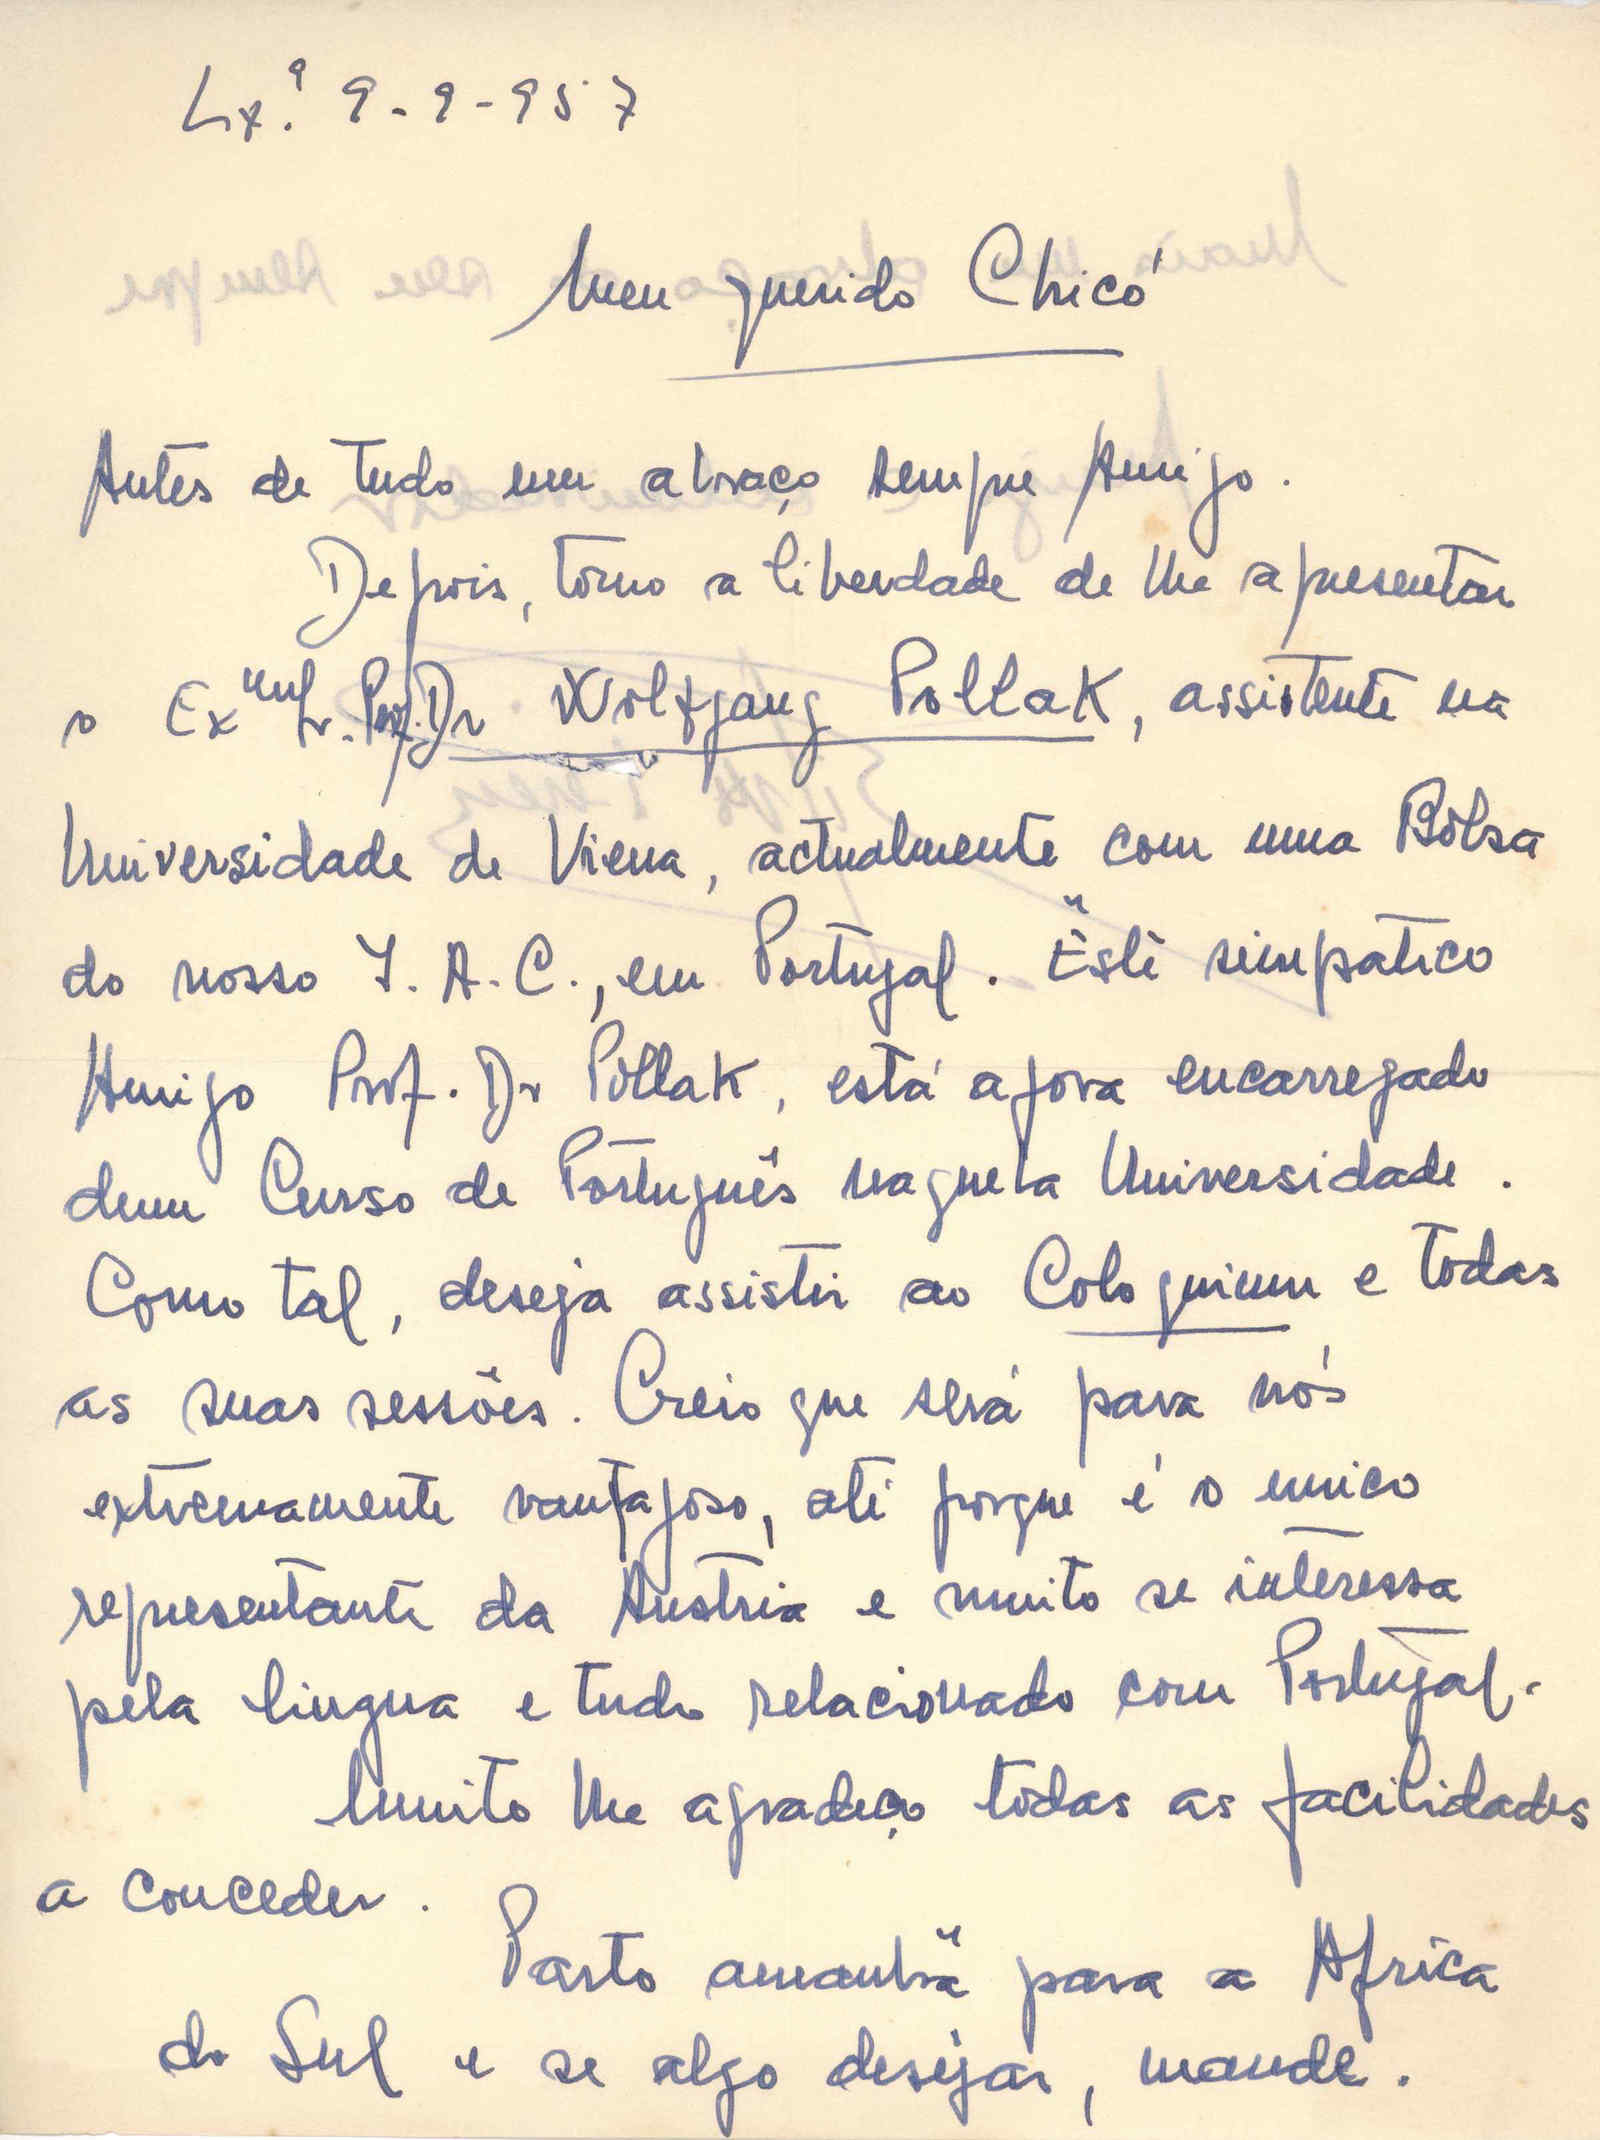 Lx.ª 9-9-957
Meu querido Chicó
Antes de tudo um abraço sempre Amigo.
Depois, tomo a liberdade de lhe apresentar
o Exmº Sr. Prof. Dr Wolfgang Pollak, assistente na
Universidade de Viena, actualmente com uma Bôlsa
do nosso I. A. C., em Portugal. Êste simpatico
Amigo Prof. Dr Pollak, está agora encarregado
dum Curso de Português naquela Universidade.
Como tal, deseja assistir ao Coloquium e todas
as suas sessões. Creio que será para nós
extremamente vantajoso, até porque é o unico
representante da Austria e muito se interessa
pela lingua e tudo relacionado com Portugal.
Muito lhe agradeço todas as facilidades
a conceder.
Parto amanhã para a Africa
do Sul e se algo desejar, mande.